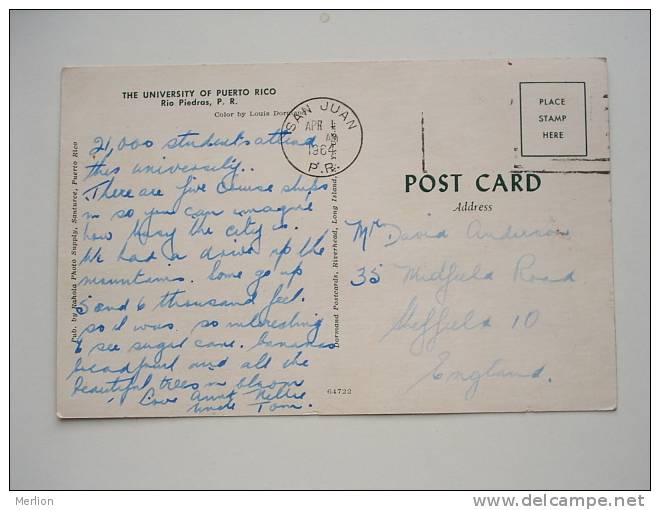 THE UNIVERSITY OF PUERTO RICO
Rio Piedras, P. R.
Color by Louis
21,000 students attend
this university..
There are five cruise ships
in so you can imagine
how busy the city is.
We had a drive up the
mountains. Some go up
5 and 6 thousand feet.
so it was. so interesting
to see sugar cane. bananas
breadfruit and all the
beautiful trees in bloom
Love Aunt Nellie
Uncle Tom.
Pub. by Rahola Photo Supply, Santurce, Puerto Rico
SAN JUAN
APR
AM
P.R.
Dormand Postcards, Riverhead, Long Island,
64722
PLACE
STAMP
HERE
POST CARD
Address
Mr David Anderson
35 Midfield Road
Sheffield 10
England.
Merlion
delcampe.net